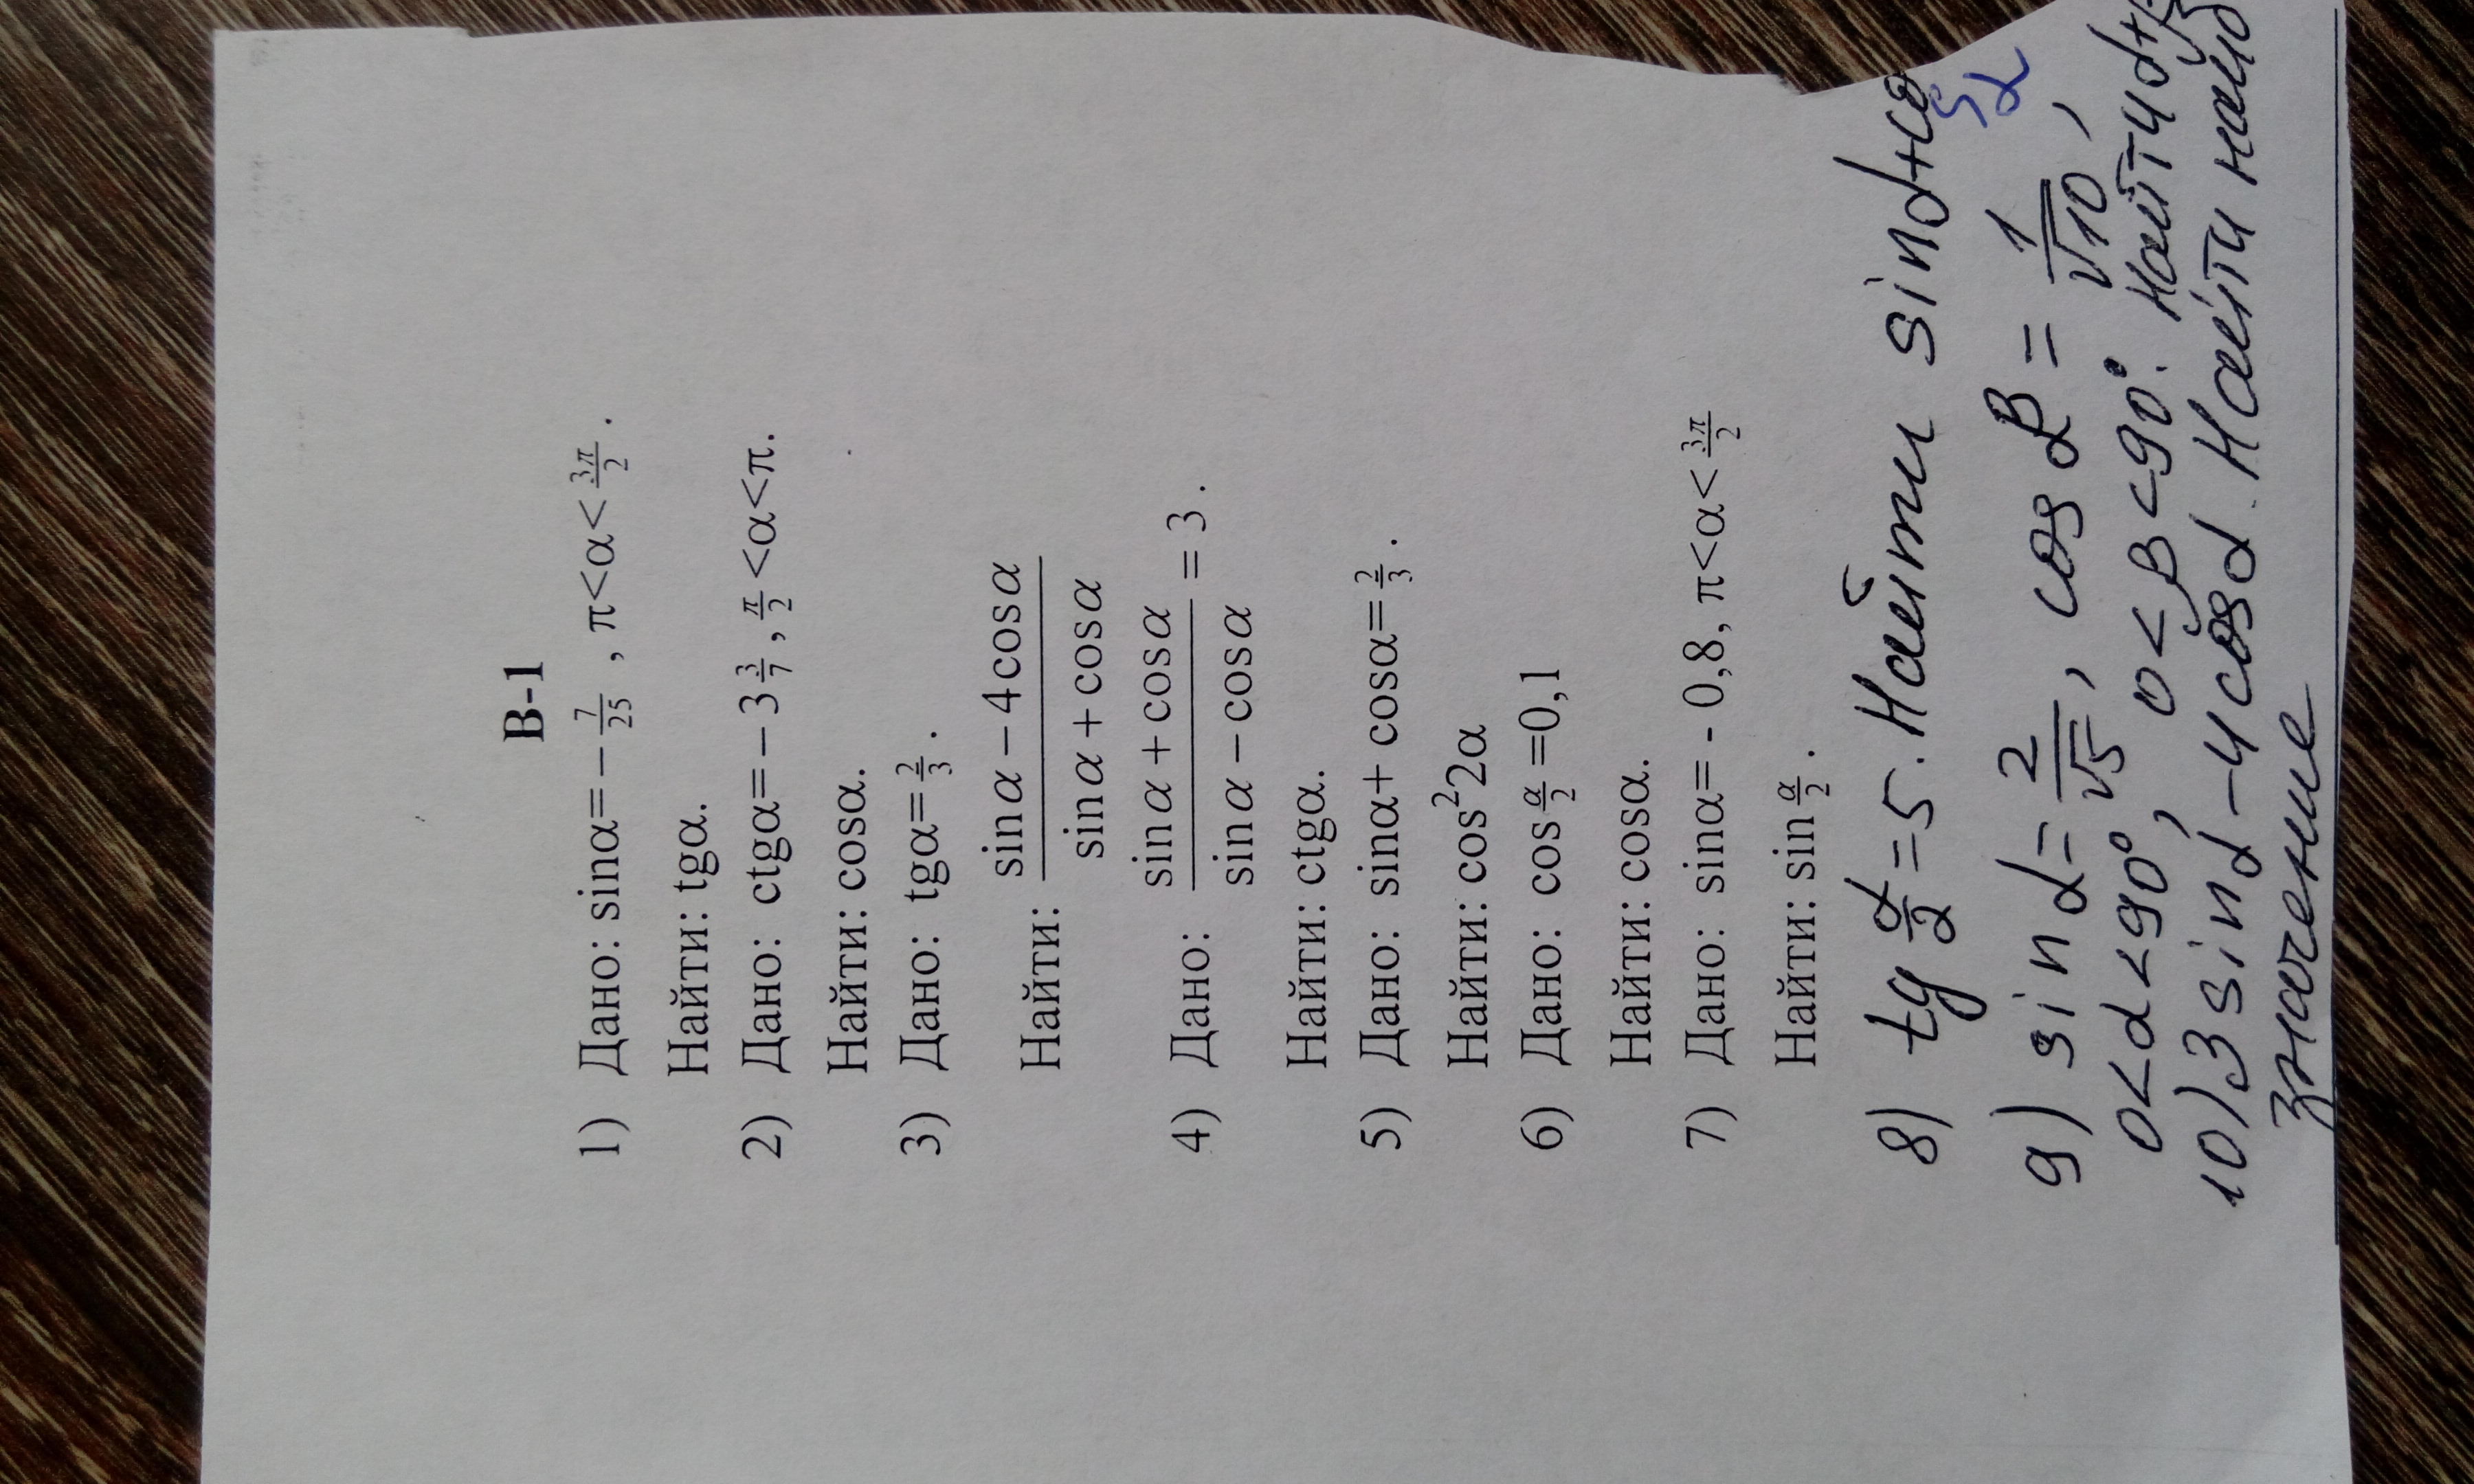 В-1
1) Дано: sinα=−7/25 , π<α<3π/2 .
Найти: tgα.
2) Дано: ctgα=−3 3/7 , π/2 <α<π.
Найти: cosα.
3) Дано: tgα=2/3 .
Найти: (sinα−4cosα)/(sinα+cosα)
4) Дано: (sinα+cosα)/(sinα−cosα) =3 .
Найти: ctgα.
5) Дано: sinα+ cosα=2/3 .
Найти: cos²2α
6) Дано: cos α/2 =0,1
Найти: cosα.
7) Дано: sinα= - 0,8, π<α<3π/2
Найти: sin α/2 .
8) tg α/2 =5. Найти sinα+co
s α
9) sin α= 2/√5 , cos β = 1/√10 ,
0<α<90°, 0<β<90°. Найти α+β
10) 3 sin α −4 cos α. Найти наиб
значение